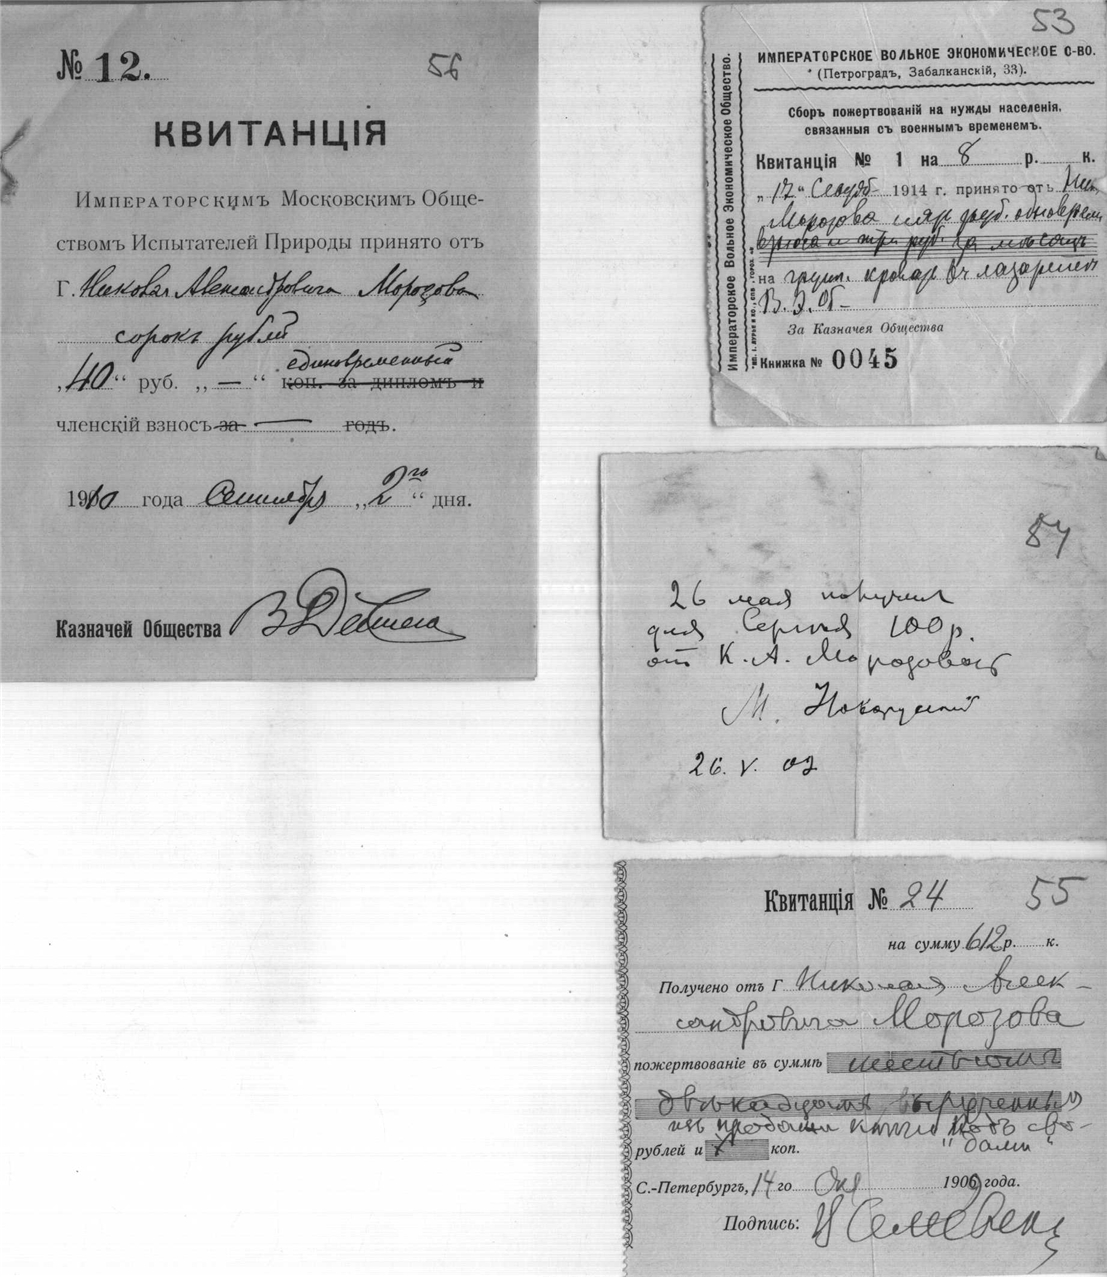 № 12.
56
КВИТАНЦІЯ
Императорскимъ Московскимъ Обще-
ствомъ Испытателей Природы принято отъ
Г. Николая Александровича Морозова
сорокъ рублей
„40“ руб. „—“ коп. за дипломъ и
единовременный
членскій взносъ за — годъ.
1910 года Сентября „2го“ дня.
Казначей Общества
53
Императорское Вольное Экономическое Общество.
ИМПЕРАТОРСКОЕ ВОЛЬНОЕ ЭКОНОМИЧЕСКОЕ О-ВО.
(Петроградъ, Забалканскій, 33).
Сборъ пожертвованій на нужды населенія,
связанныя съ военнымъ временемъ.
Квитанція № 1 на 8 р. к.
„12“ 1914 г. принято отъ Ник.
Морозова
на лазарет
В. Э. Об-
За Казначея Общества
Книжка № 0045
54
26 мая получил
для Сергея 100 р.
от К. А. Морозовой
М.
26. V. 02
Квитанція № 24
55
на сумму 612 р. к.
Получено отъ Г Николая Алек-
сандровича Морозова
пожертвованіе въ суммѣ шестьсотъ
двѣнадцать вырученныхъ
изъ продажи книги „Подъ сво-
дами“
рублей и х коп.
С.-Петербургъ, 14 го Окт 1909 года.
Подпись: